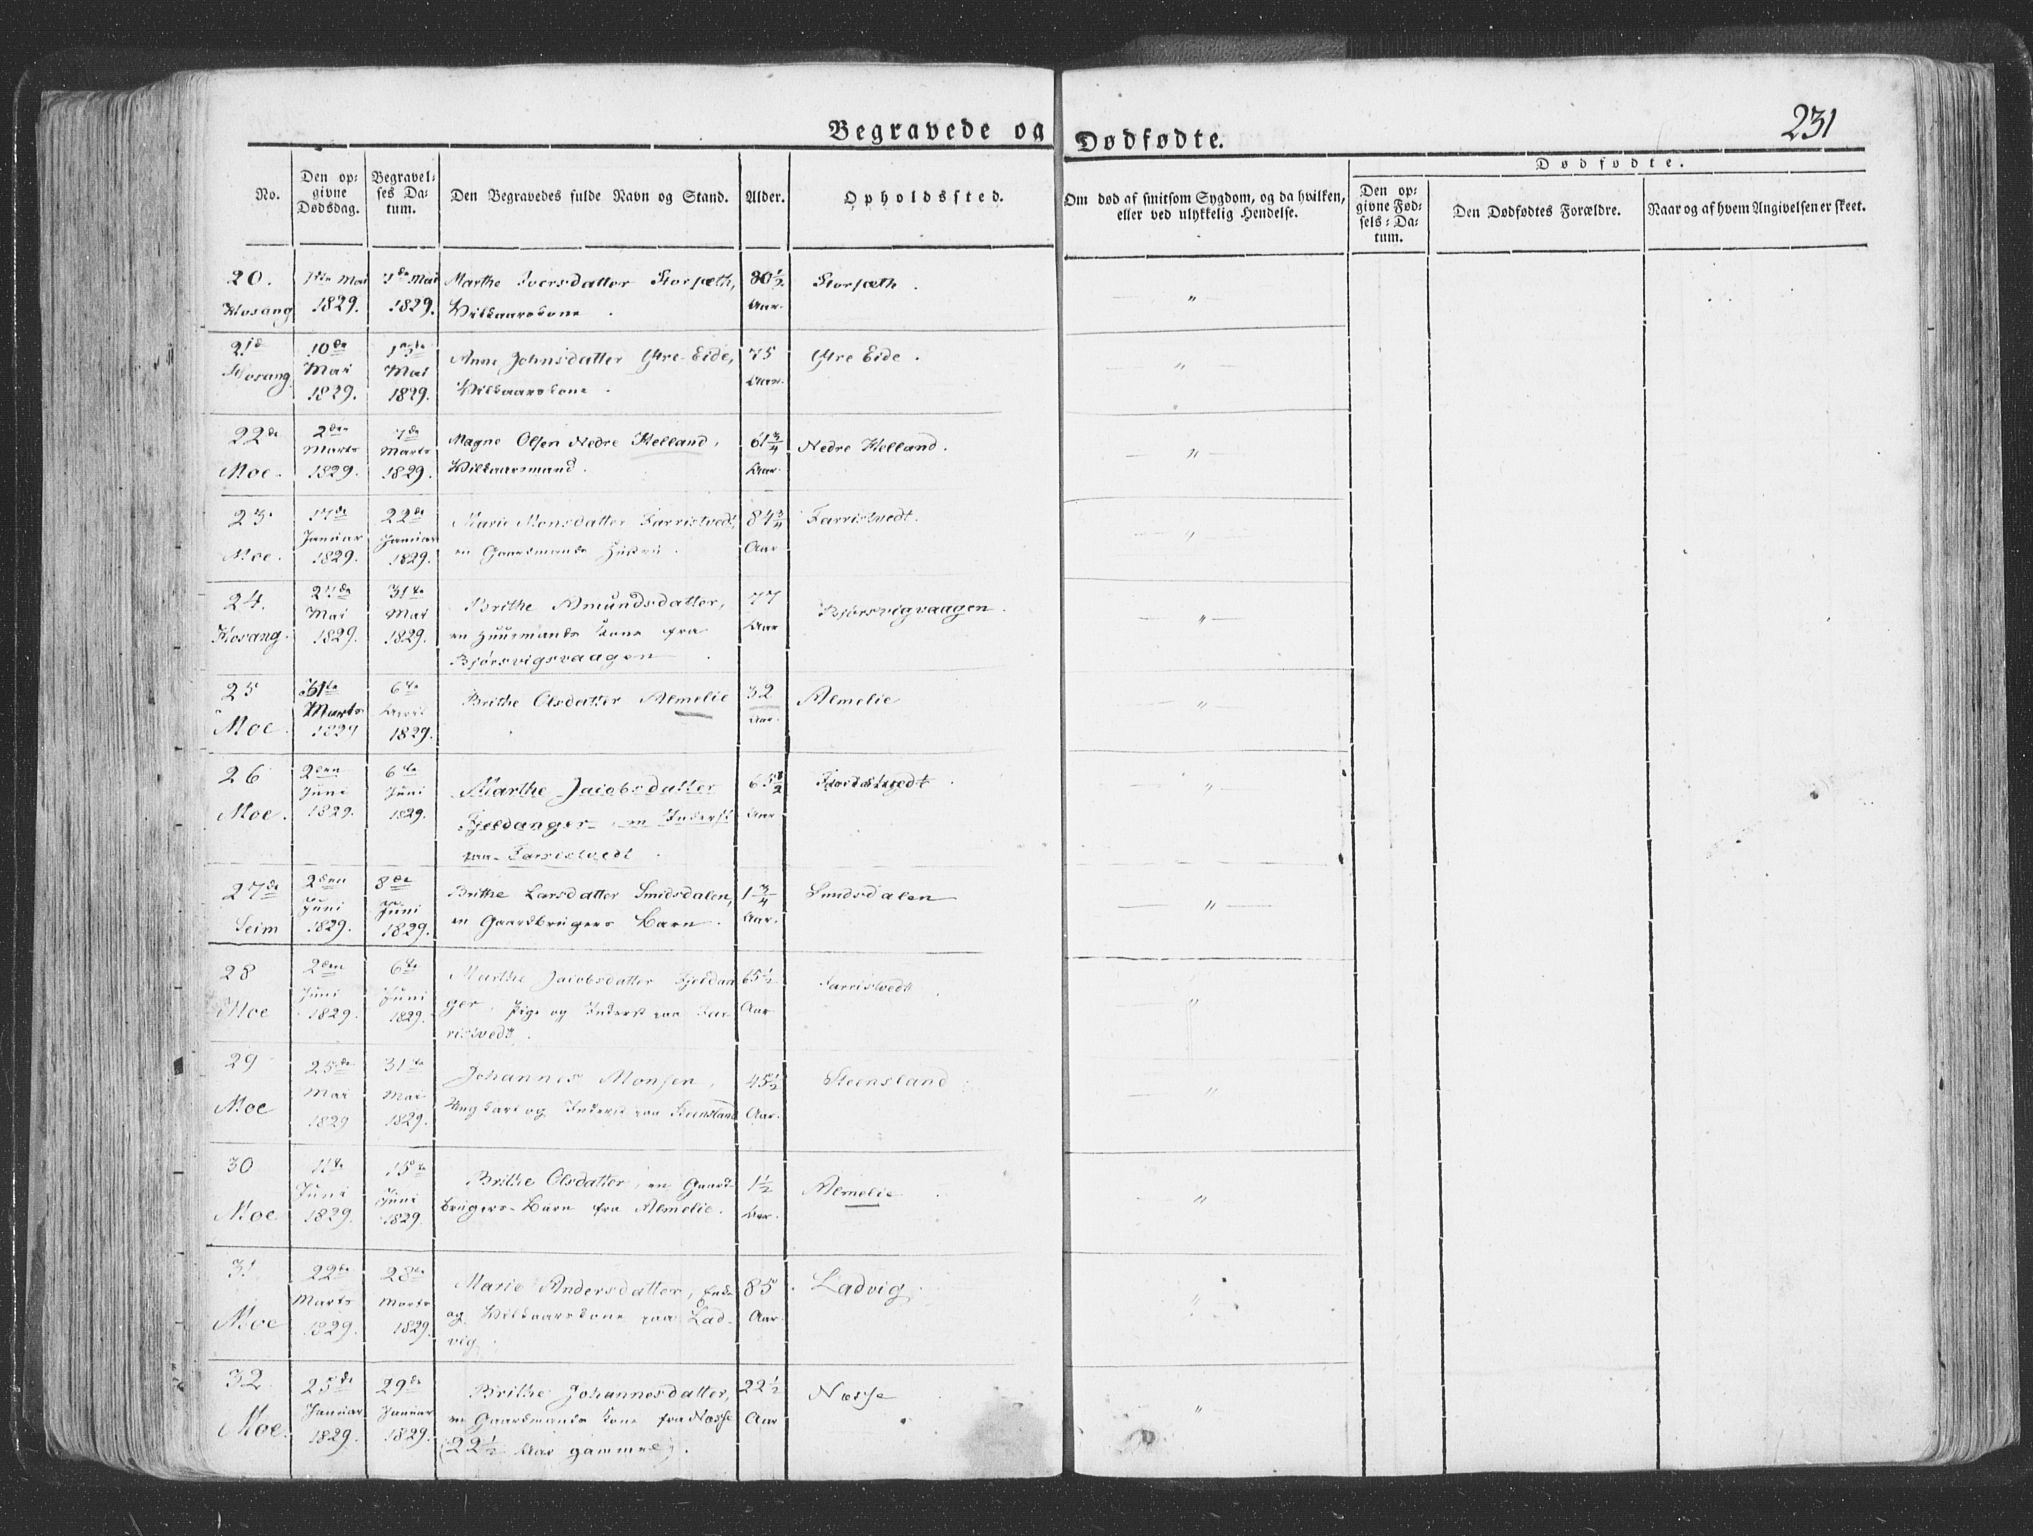 Begravede og Dødfødte.
231
No.
Den op-
givne
Dødsdag.
Begravel-
ses Da-
tum.
Den Begravedes fulde Navn og Stand.
Alder.
Opholdssted.
Om død af smitsom Sygdom, og da hvilken,
eller ved ulykkelig Hendelse.
Dødfødte.
Den op-
givne Fød-
sels-Da-
tum.
Den Dødfødtes Forældre.
Naar og af hvem Angivelsen er skeet.
20. Mai 7de Mai Marthe Iversdatter Storsæth, 80½ Storsæth.
Hosang 1829. 1829. Vilkaarskone. Aar. "
21de 10de Anne Johnsdatter Ytre Eide, 75 Ytre Eide.
Hosang Mai Mai Vilkaarskone. Aar. "
1829. 1829.
22de 2den 7de Magne Olsen Nedre Helland, 61¾ Nedre Helland.
Moe. Marts Marts Vilkaarsmand. Aar. "
1829. 1829.
23. 17de 22de Marie Monsdatter Farristvedt, 84¾ Farristvedt.
Moe. Januar Januar en Gaardmands Hustru. Aar "
1829. 1829.
24. 27de 31te Brithe Amundsdatter, 77 Bjørsvigvaagen.
Hosang. Mai Mai en Huusmands Kone fra Aar "
1829. 1829. Bjørsvigsvaagen.
25 31te 6te Brithe Olsdatter Almelie 32 Almelie
Moe. Marts April Aar. "
1829 1829.
26 2den 6te Marthe Jacobsdatter 65½ Farristvedt.
Moe. Juni Juni Fjeldanger, en Inderst Aar "
1829. 1829. paa Farristvedt.
27de 2den 8de Brithe Larsdatter Smidsdalen, 1¾ Smidsdalen
Seim Juni Juni en Gaardbrugers Barn. Aar. "
1829. 1829.
28 2den 6te Marthe Jacobsdatter Fjeldan- 65½ Farristvedt.
Moe Juni Juni ger, Pige og Inderst paa Far- Aar "
1829. 1829. ristvedt.
29 25de 31te Johannes Monsen, 45½ Steensland
Moe Mai Mai Ungkarl og Inderst paa Steensland Aar. "
1829 1829.
30 11te 15de Brithe Olsdatter, en Gaard- 1½ Almelie.
Moe Juni Juni brugers Barn fra Almelie. Aar. "
1829. 1829.
31 22de 28de Marie Andersdatter, Enke 85 Ladvig.
Moe Marts Marts og Vilkaarskone paa Lad- Aar. "
1829. 1829. vig.
32. 25de 29de Brithe Johannesdatter, 22½ Næsse
Moe. Januar Januar en Gaardmands Kone fra Næsse Aar "
1829. 1829. (22½ Aar gammel).